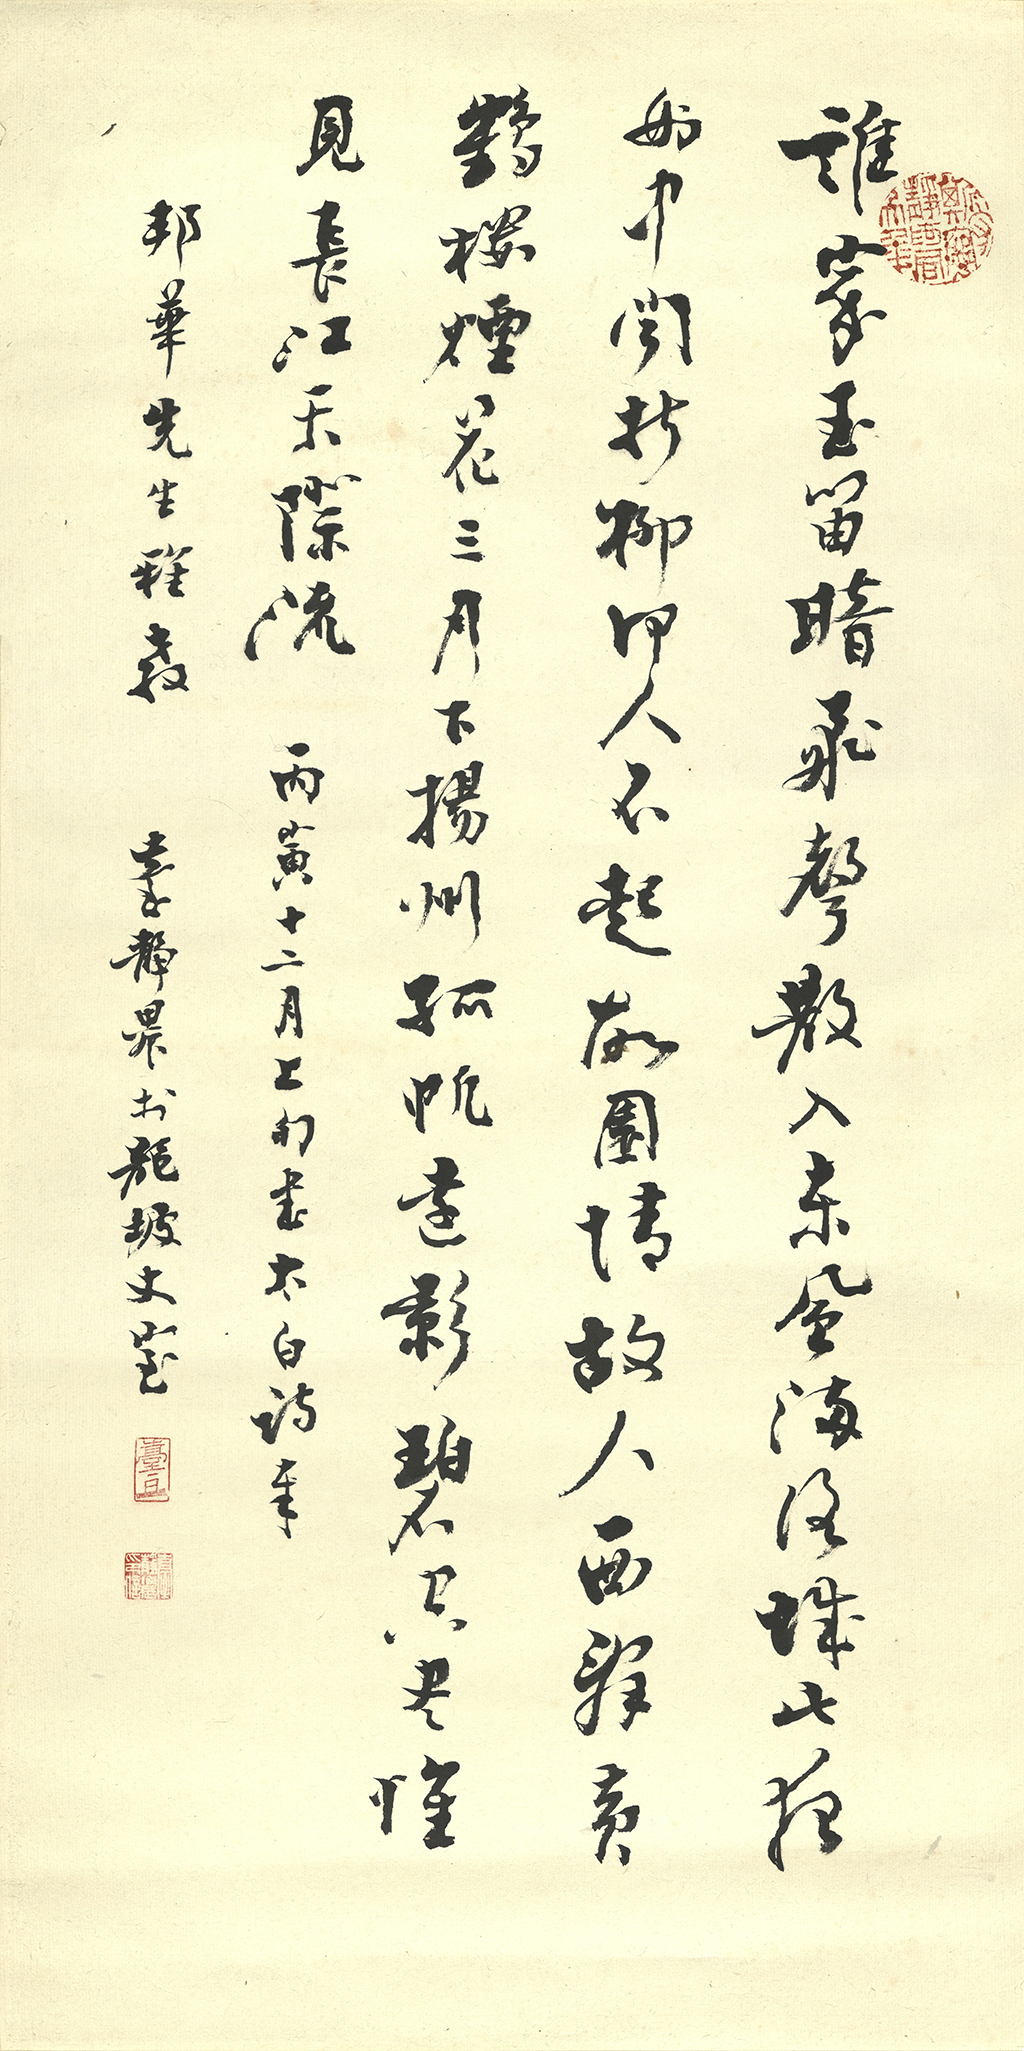 誰家玉笛暗飛聲散入東風滿洛城此夜
曲中聞折柳何人不起故園情故人西辭黃
鶴樓煙花三月下揚州孤帆遠影碧空盡惟
見長江天際流 丙寅十二月上旬書太白詩章
邦華先生雅教 臺靜農於龍坡丈室